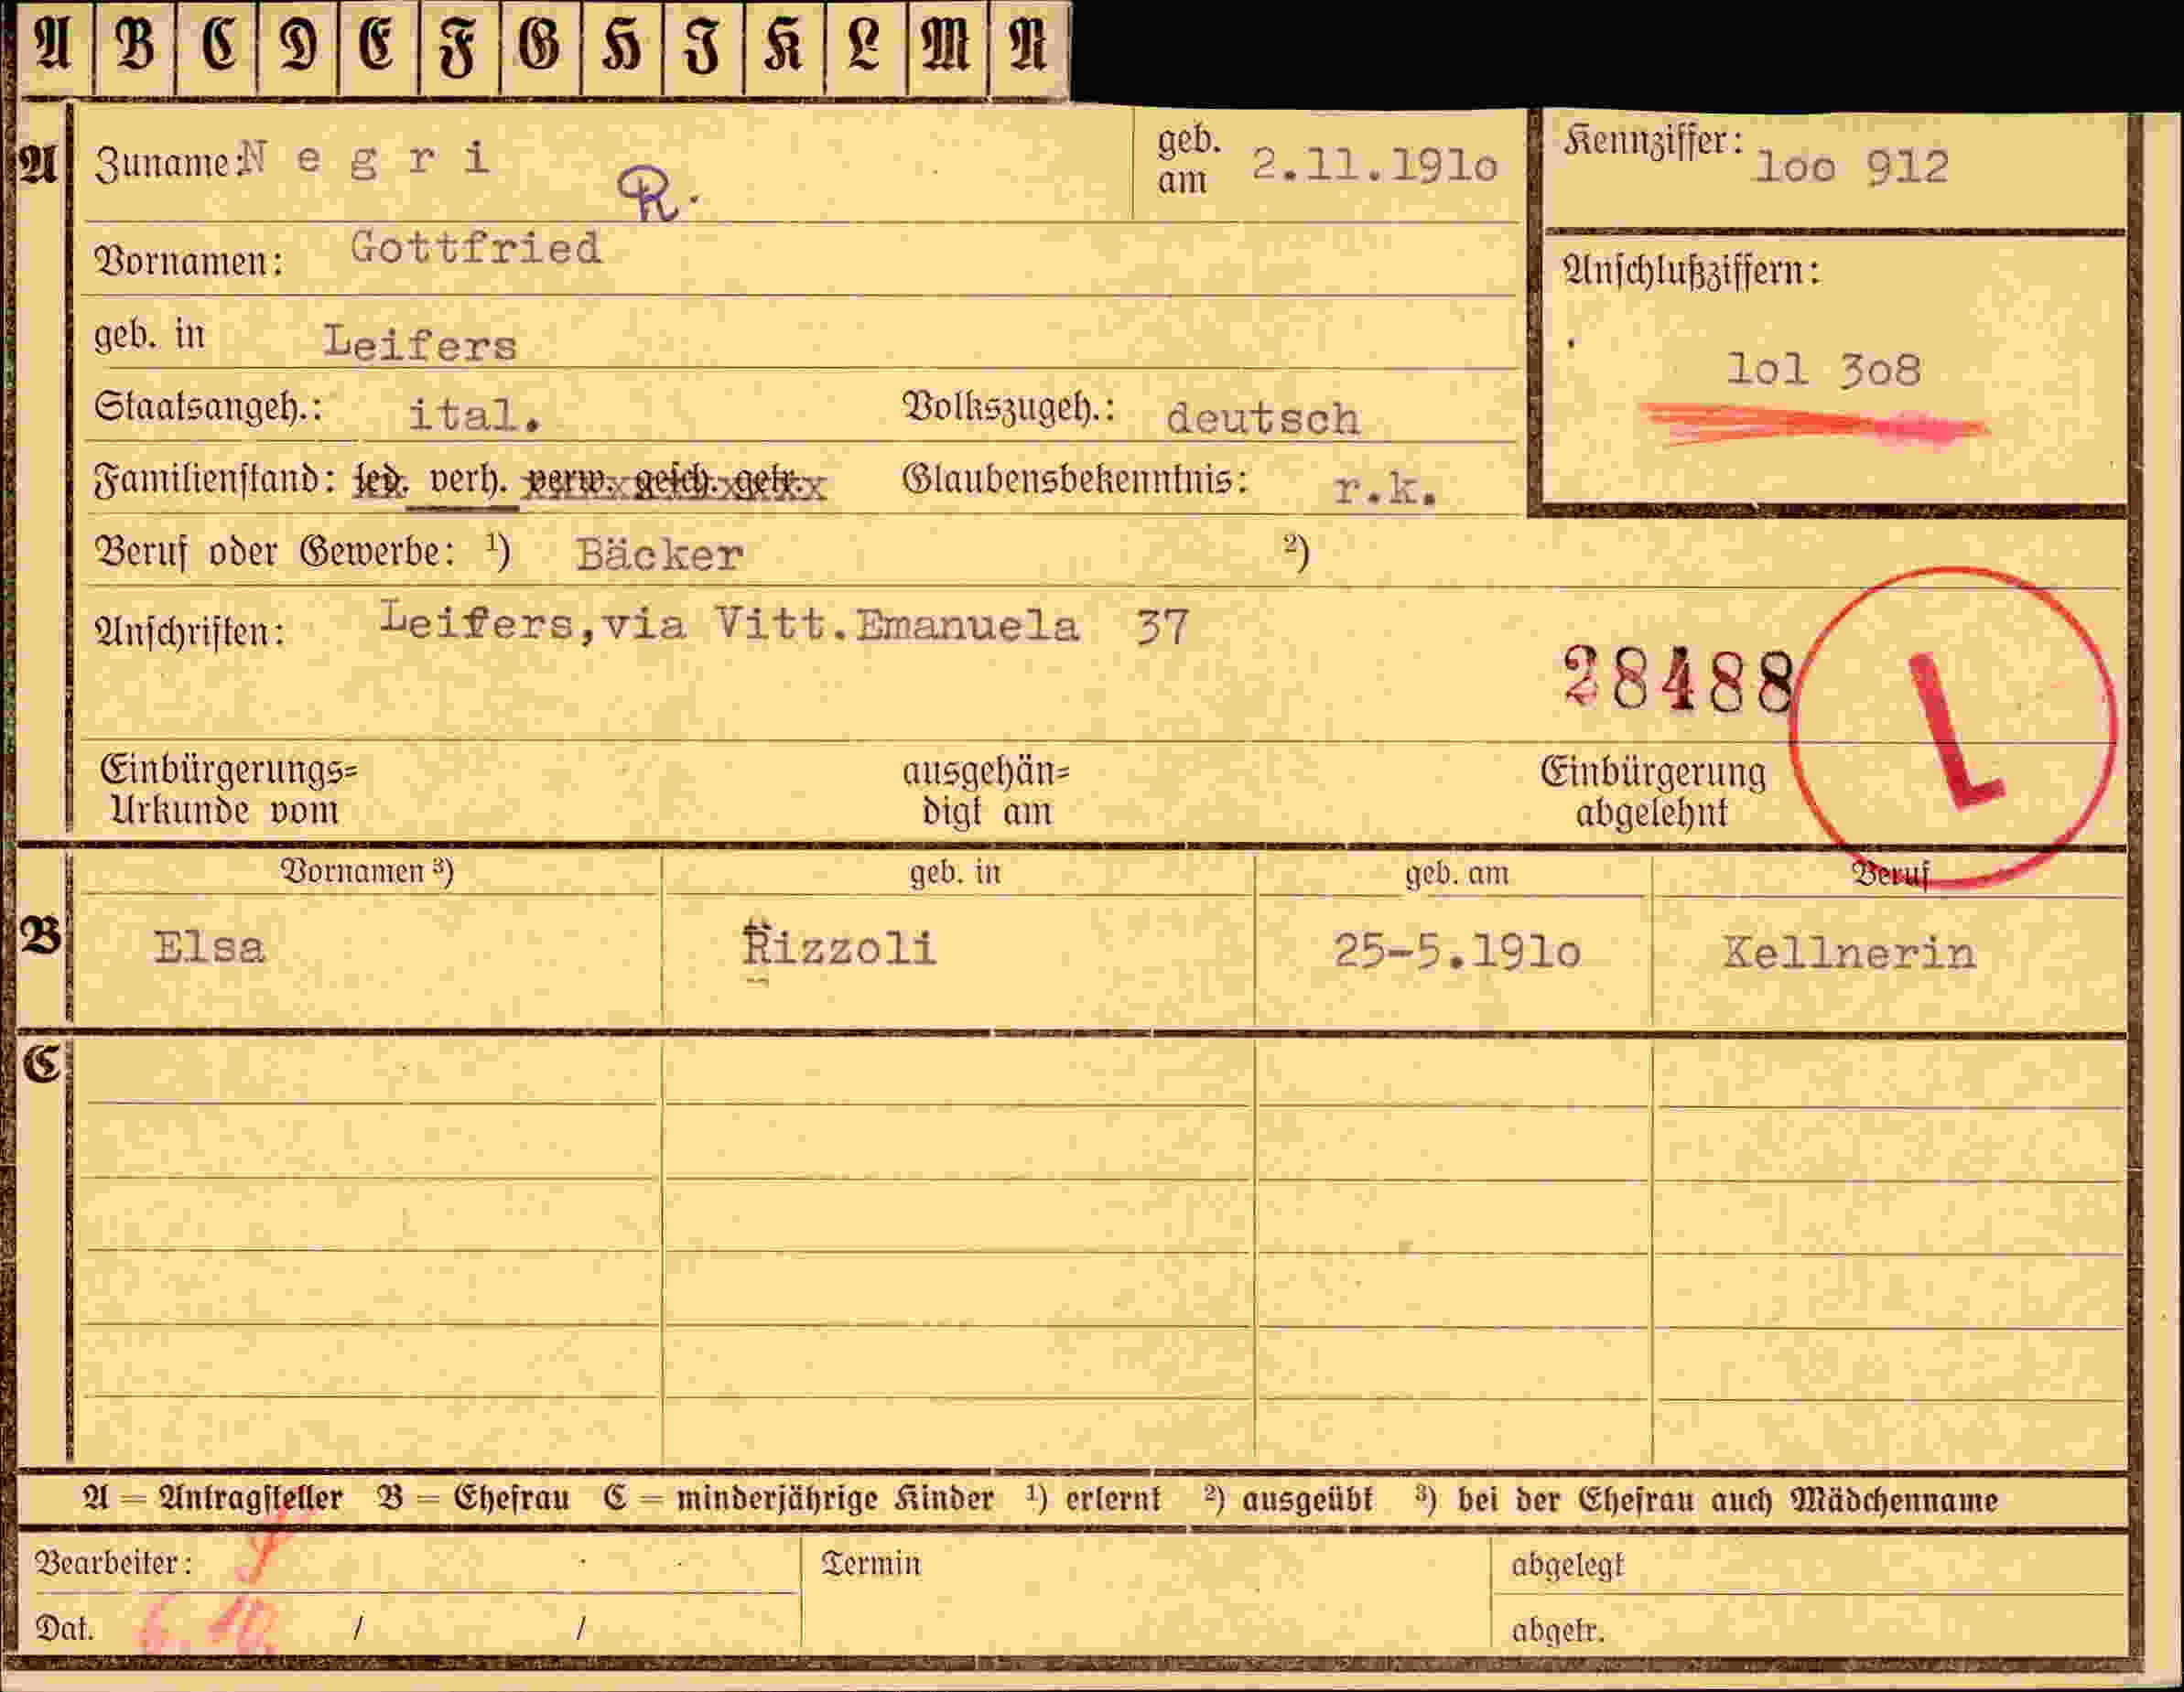 A B C D E F G H J K L M N
A Zuname: Negri geb. am 2.11.191o Kennziffer: loo 912
R.
Vornamen: Gottfried
Anschlußziffern:
geb. in Leifers
lol 3o8
Staatsangeh.: ital. Volkszugeh.: deutsch
Familienstand: led. verh. verw. gesch. getr. Glaubensbekenntnis: r.k.
Beruf oder Gewerbe: ¹) Bäcker ²)
Anschriften: Leifers,via Vitt.Emanuela 37
28488 L
Einbürgerungs= Urkunde vom ausgehän= digt am Einbürgerung abgelehnt
Vornamen ³) geb. in geb. am Beruf
B Elsa Rizzoli 25-5.191o Kellnerin
C
A = Antragsteller B = Ehefrau C = minderjährige Kinder ¹) erlernt ²) ausgeübt ³) bei der Ehefrau auch Mädchenname
Bearbeiter: Termin abgelegt
Dat. 6.10. / / abgetr.